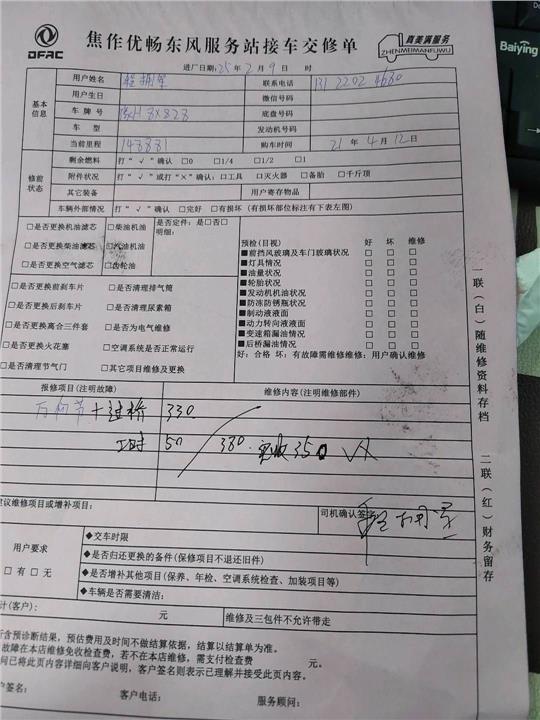 DFAC
焦作优畅东风服务站接车交修单
真美满服务
ZHENMEIMANFUWU
Baiying
进厂日期:25年2月9日 时
基本信息
用户姓名
联系电话 131 2202 4680
用户生日
微信号码
车牌号 豫H 8X828
底盘号码
车型
发动机号码
当前里程 148881
购车时间 21年4月12日
修前状态
剩余燃料 打“√”确认 □0 □1/4 □1/2 □1
附件状况 打“√”或打“×”确认:□工具 □灭火器 □备胎 □千斤顶
其它装备
用户寄存物品
车辆外部情况 打“√”确认 □完好 □有损坏(有损坏部位标注有下表左图)
□是否更换机油滤芯 □柴油机油
□是否更换柴油滤芯 □汽油机油
□是否更换空气滤芯 □齿轮油
是否定件:是□否□
明细:
□是否更换前刹车片 □是否清理排气筒
□是否更换后刹车片 □是否清理尿素箱
□是否更换离合三件套 □是否为电气维修
□是否更换火花塞 □空调系统是否正常运行
□是否清理节气门 □其它项目维修及更换
预检(目视) 好 坏 维修
■前挡风玻璃及车门玻璃状况 □ □ □
■灯具情况 □ □ □
■油量状况 □ □ □
■轮胎状况 □ □ □
■发动机机油状况 □ □ □
■防冻防锈瓶状况 □ □ □
■制动液液面 □ □ □
■动力转向液液面 □ □ □
■变速箱漏油情况 □ □ □
■后桥漏油情况 □ □ □
好:合格 坏:有故障需维修维修:用户确认维修
报修项目(注明故障)
维修内容(注明维修部件)
万向节+过桥 330
工时 50 380 实收350
建议维修项目或增补项目:
司机确认签字
用户要求
□有 □无
◆交车时限
◆是否归还更换的备件(保修项目不退还旧件)
◆是否增补其他项目(保养、年检、空调系统检查、加装项目等)
◆车辆是否需要清洁:
计(客户): 元
维修及三包件不允许带走
所含预诊断结果,预估费用及时间不做结算依据,结算以结算单为准。
故障在本店维修免收检查费,若不在本店维修,需支付检查费 元。
问已将此页内容详细向客户说明,客户签名则表示已理解并接受此页内容。
客户签名:
客户电话:
服务顾问:
一联(白)随维修资料存档
二联(红)财务留存